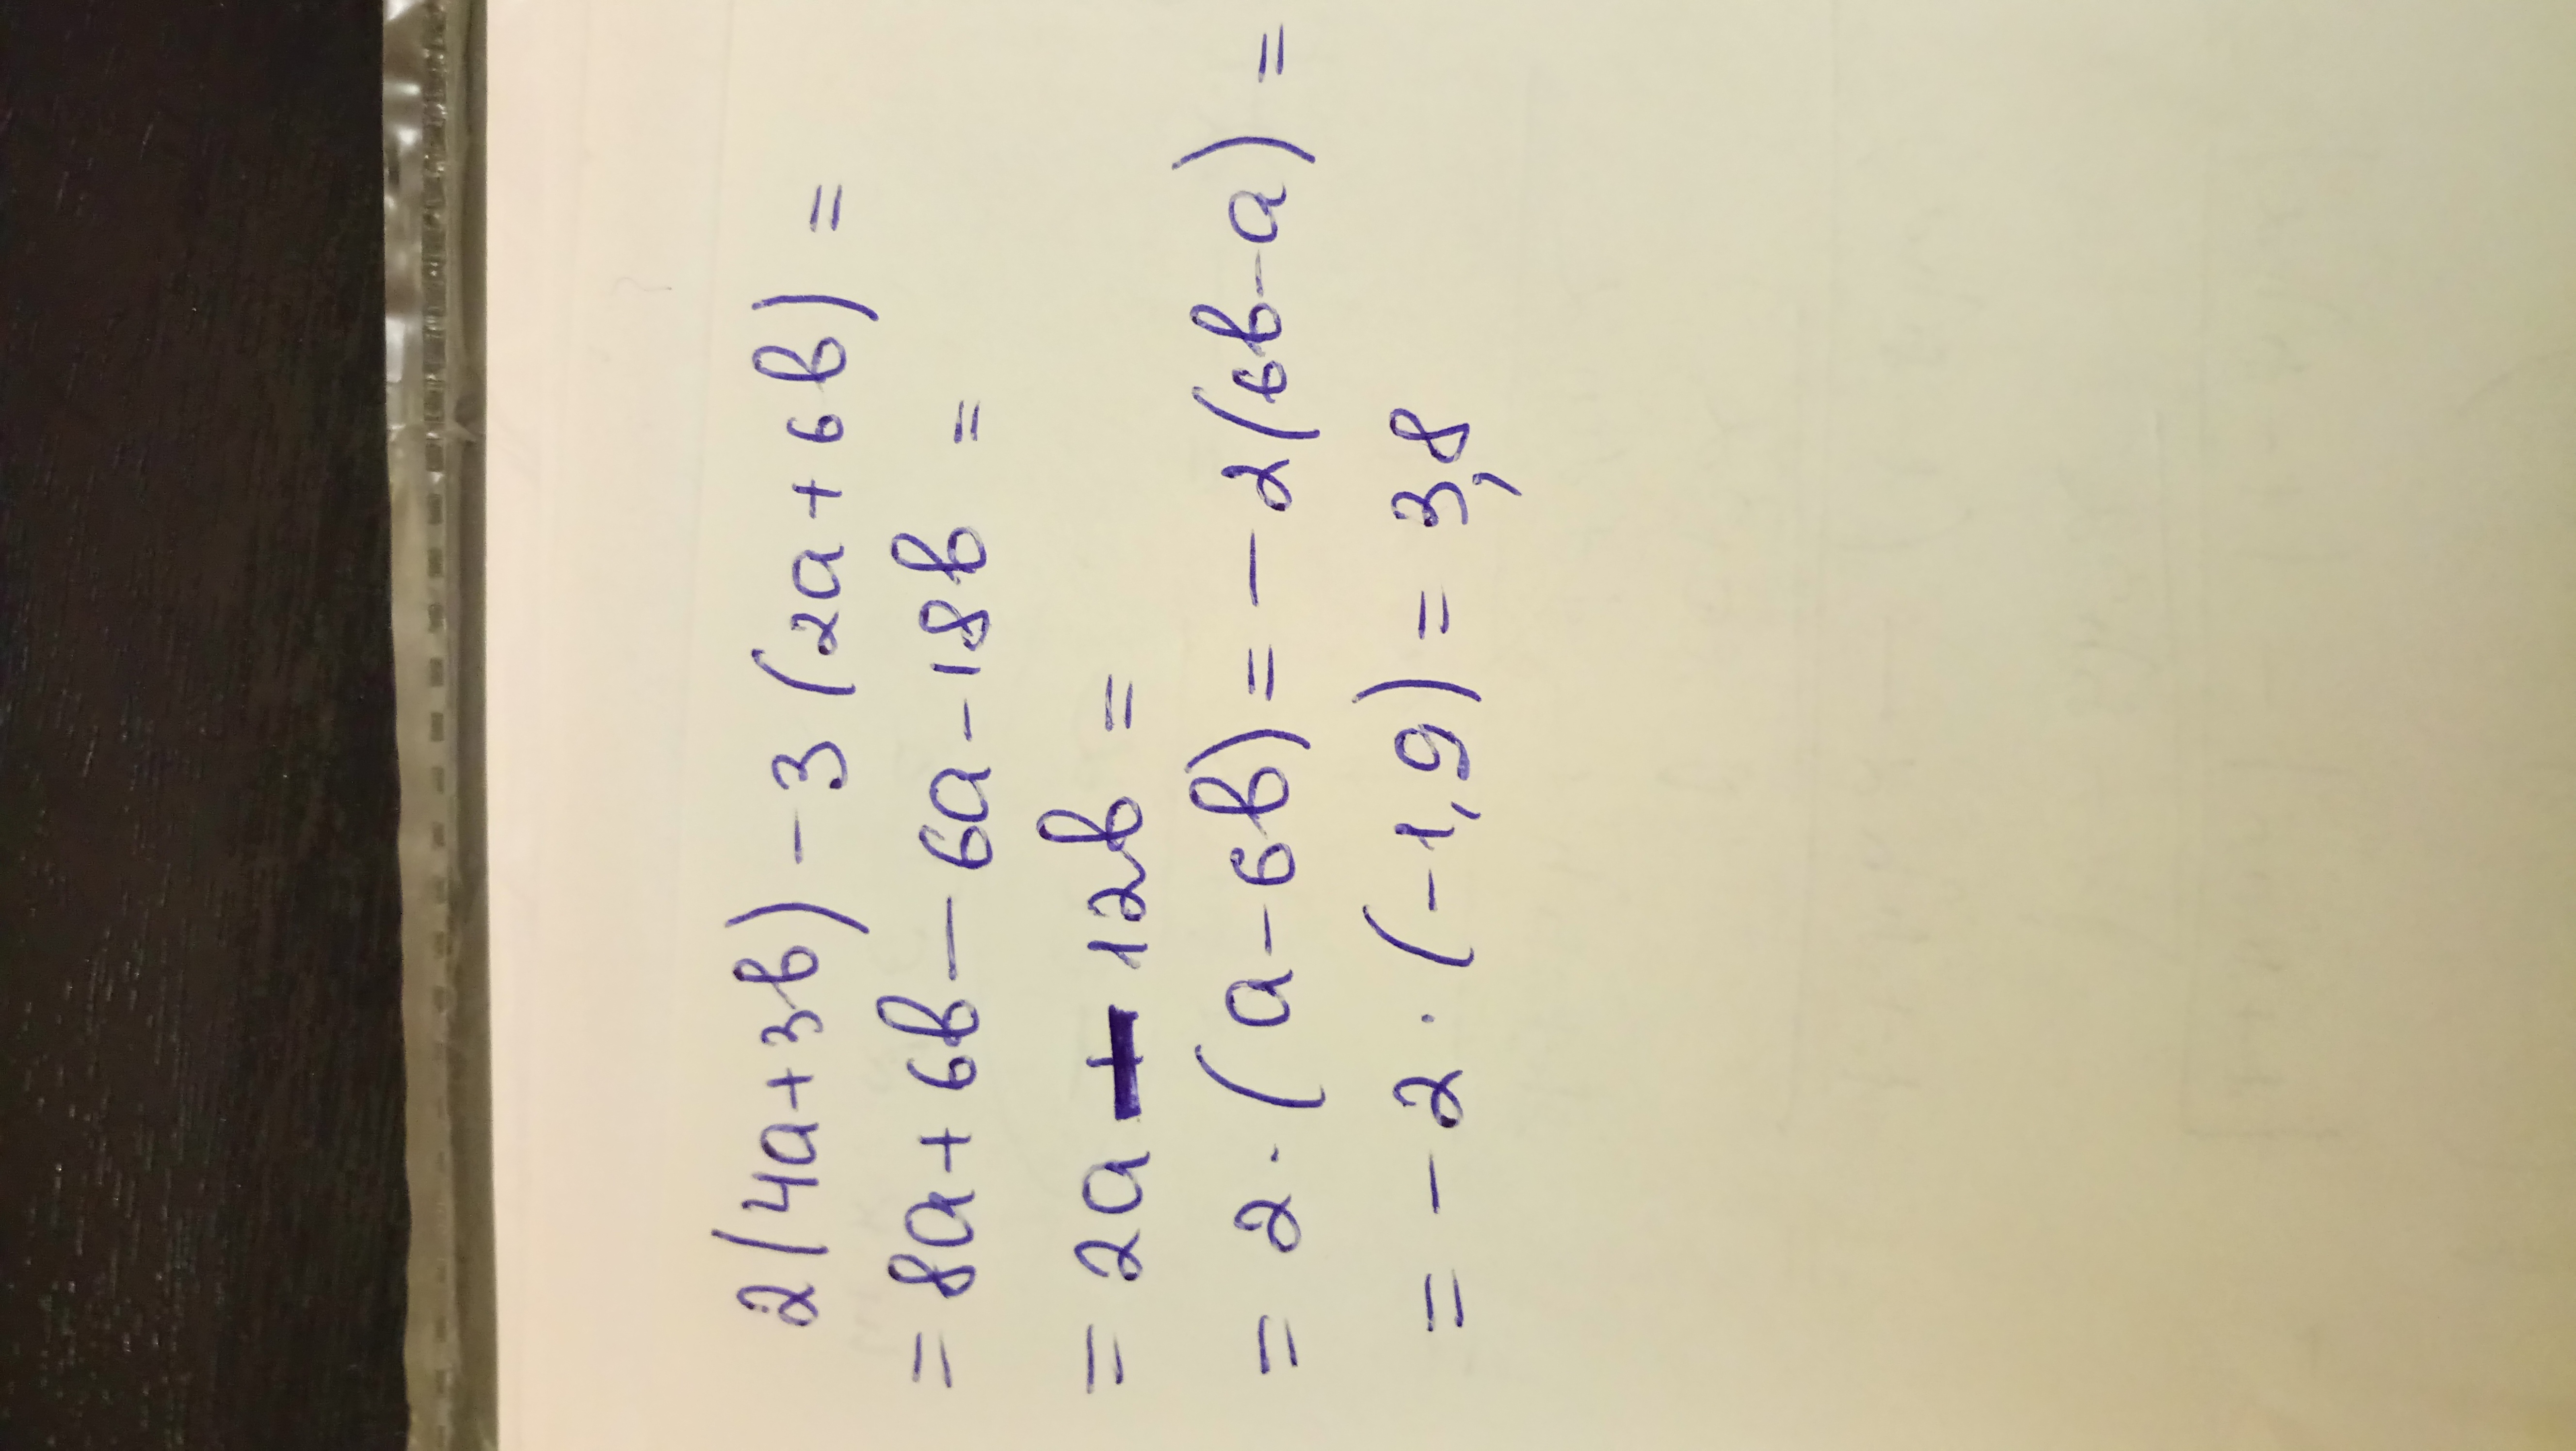 2(4a+3b)-3(2a+6b)=
=8a+6b-6a-18b=
=2a-12b=
=2·(a-6b)=-2(6b-a)=
=-2·(-1,9)=3,8